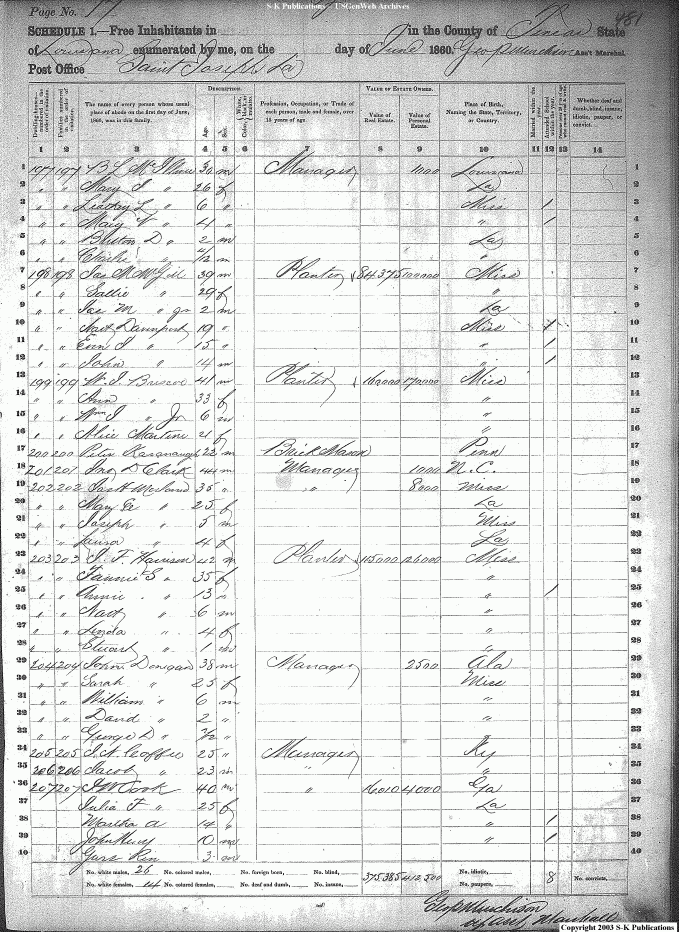 S-K Publications - USGenWeb Archives
Page No. 17
481
SCHEDULE 1.—Free Inhabitants in in the County of Tensas State
of Louisiana enumerated by me, on the day of June 1860. Geo P Murchison Ass't Marshal.
Post Office Saint Joseph La
Dwelling-houses—numbered in the order of visitation.
Families numbered in the order of visitation.
The name of every person whose usual place of abode on the first day of June, 1860, was in this family.
DESCRIPTION.
Age.
Sex.
Color, White, black, or mulatto.
Profession, Occupation, or Trade of each person, male and female, over 15 years of age.
VALUE OF ESTATE OWNED.
Value of Real Estate.
Value of Personal Estate.
Place of Birth, Naming the State, Territory, or Country.
Married within the year.
Attended School within the year.
Whether deaf and dumb, blind, insane, idiotic, pauper, or convict.
1 2 3 4 5 6 7 8 9 10 11 12 13 14
1 197 197 B L 30 m Manager 1000 Louisiana 1
2 " " Mary " 26 f La 2
3 " " L " 6 " Miss 1 3
4 " " Mary V " 4 " " 1 4
5 " " Burton D " 2 m La 5
6 " " Charlie " m " 6
7 198 198 Jas M McGill 39 m Planter 84375 100000 Miss 7
8 " " Sallie " 29 f " 8
9 " " Jas M " jr 2 m La 9
10 " " Davenport 19 " Miss 1 10
11 " " " 15 " " 1 11
12 " " John " 14 m " 1 12
13 199 199 W. J. Briscoe 41 m Planter 160000 170000 Miss 13
14 " " Ann " 33 f " 14
15 " " Wm J " Jr 6 m " 15
16 " " Alice Martin f " 16
17 200 200 Peter Kavanaugh 22 m Brick Mason Penn 17
18 201 201 Jno D Clark 44 m Manager 1000 N.C. 18
19 202 202 35 " " 8000 Miss 19
20 " " Mary " 25 f La 20
21 " " Joseph " 5 m Miss 21
22 " " Laura " 4 f La 22
23 203 203 J. F. Harrison 42 m Planter 115000 126000 Miss 23
24 " " Fannie S " 35 f " 24
25 " " Annie " 13 " " 1 25
26 " " " 6 m " 26
27 " " Linda " 4 f " 27
28 " " Stuart " 1 m " 28
29 204 204 John Donegan 38 m Manager 2500 Ala 29
30 " " Sarah " 25 f Miss 30
31 " " William " 6 m " 31
32 " " David " 2 " " 32
33 " " George D " " " 33
34 205 205 J. A. Coffee 25 " Manager Ky 34
35 206 206 Jacob " 23 m " " 35
36 207 207 J W Cook 40 m " 16010 4000 Ga 36
37 Julia F " 25 f La 37
38 Martha A 14 " " 1 38
39 John Henry 10 m " 1 39
40 3 m 40
No. white males, 26 No. colored males, No. foreign born, No. blind, 375385 412500 No. idiotic, 8 No. convicts,
No. white females, 14 No. colored females, No. deaf and dumb, No. insane, No. paupers,
Geo P Murchison
Asst Marshall
Copyright 2003 S-K Publications